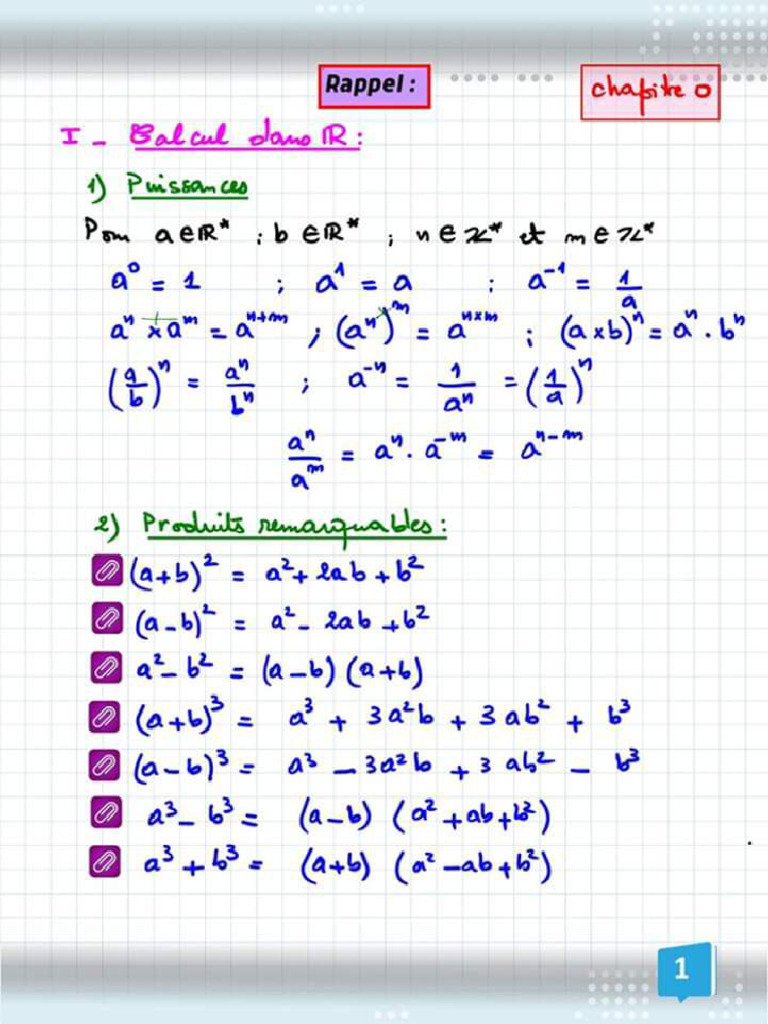 Rappel :
Chapitre 0
I - Calcul dans ℝ :
1) Puissances
Pour a ∈ ℝ* ; b ∈ ℝ* ; n ∈ ℤ* et m ∈ ℤ*
a⁰ = 1 ; a¹ = a ; a⁻¹ = 1/a
aⁿ × aᵐ = aⁿ⁺ᵐ ; (aⁿ)ᵐ = aⁿˣᵐ ; (a × b)ⁿ = aⁿ . bⁿ
(a/b)ⁿ = aⁿ/bⁿ ; a⁻ⁿ = 1/aⁿ = (1/a)ⁿ
aⁿ/aᵐ = aⁿ . a⁻ᵐ = aⁿ⁻ᵐ
2) Produits remarquables :
(a+b)² = a² + 2ab + b²
(a-b)² = a² - 2ab + b²
a² - b² = (a-b) (a+b)
(a+b)³ = a³ + 3a²b + 3ab² + b³
(a-b)³ = a³ - 3a²b + 3ab² - b³
a³ - b³ = (a-b) (a² + ab + b²)
a³ + b³ = (a+b) (a² - ab + b²)
1